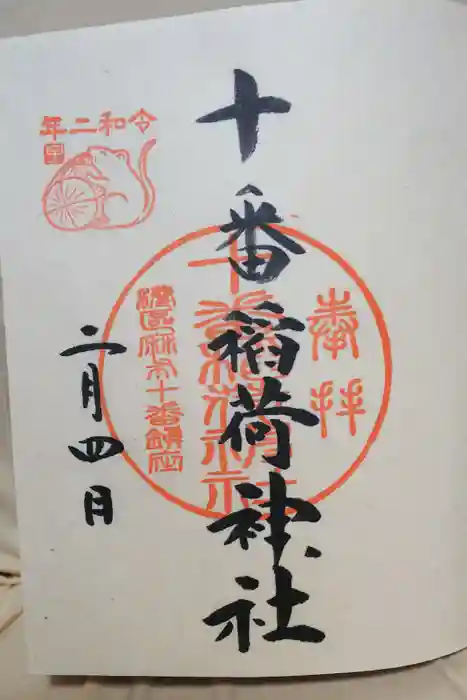 奉拝
十番稲荷神社
十番稲荷神社
港区麻布十番鎮座
令和二年
二月四日